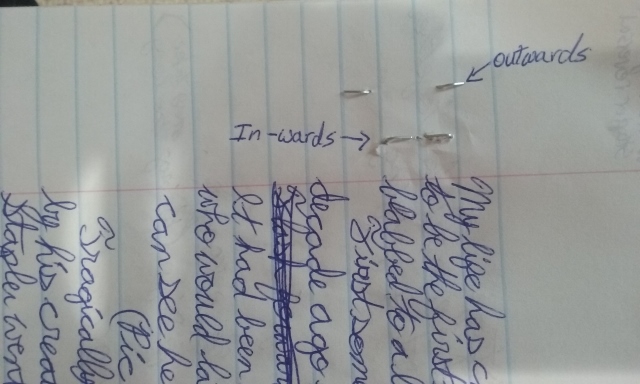 outwards
In-wards
My life has c
to be the first
blabbed to al
First som
decade ago
It had been
who would la
can see he
(Pic
Tragically
by his crea
Stapler went